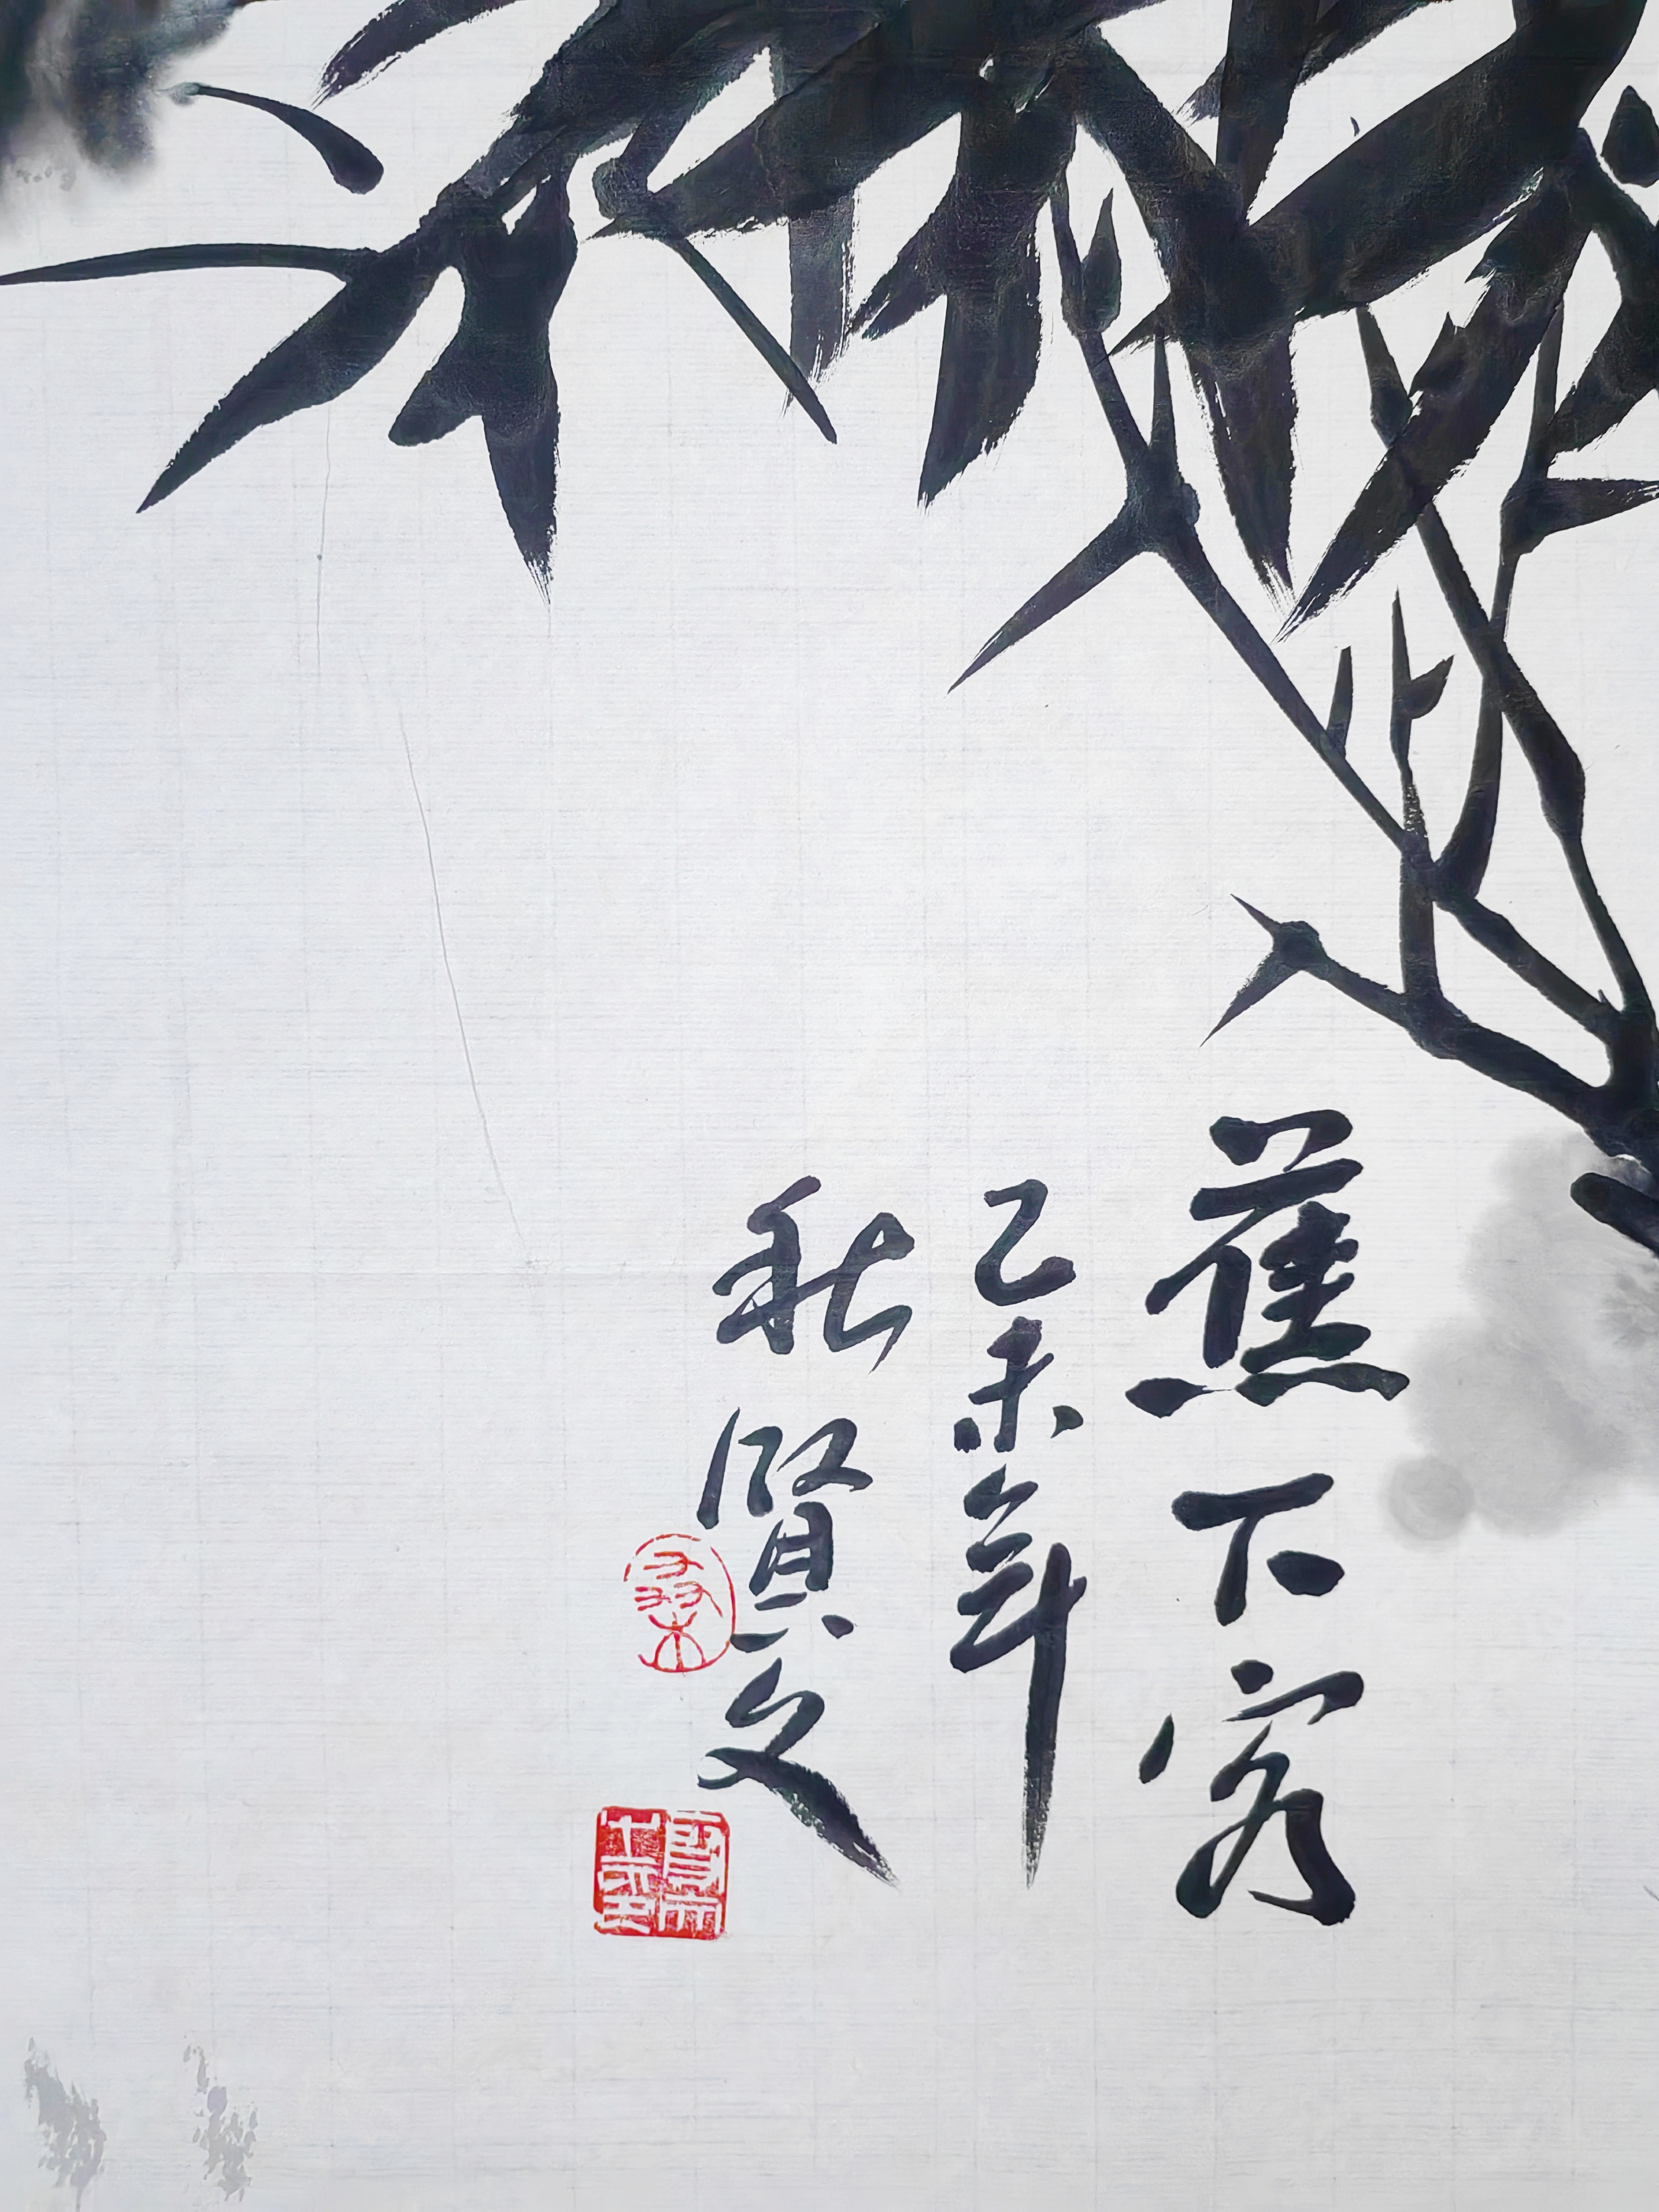 蕉下客
乙未年
秋賢文
桑